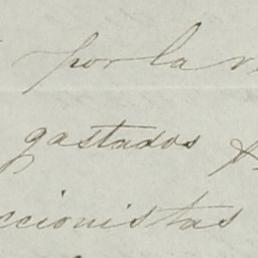 por la
gastados
ccionistas